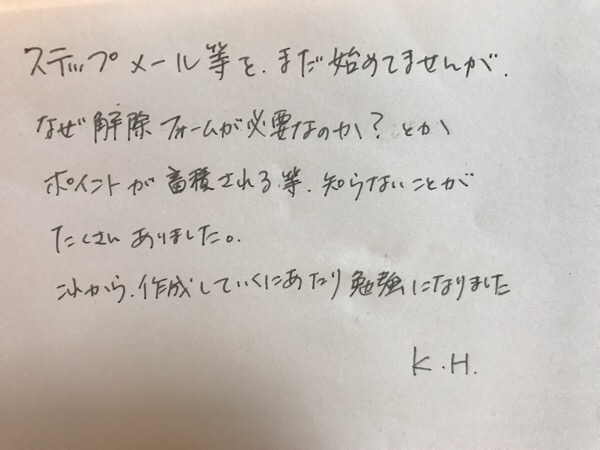 ステップメール等を、まだ始めてませんが、
なぜ解除フォームが必要なのか？とか
ポイントが畜積される等、知らないことが
たくさんありました。
これから、作成していくにあたり勉強になりました
K.H.